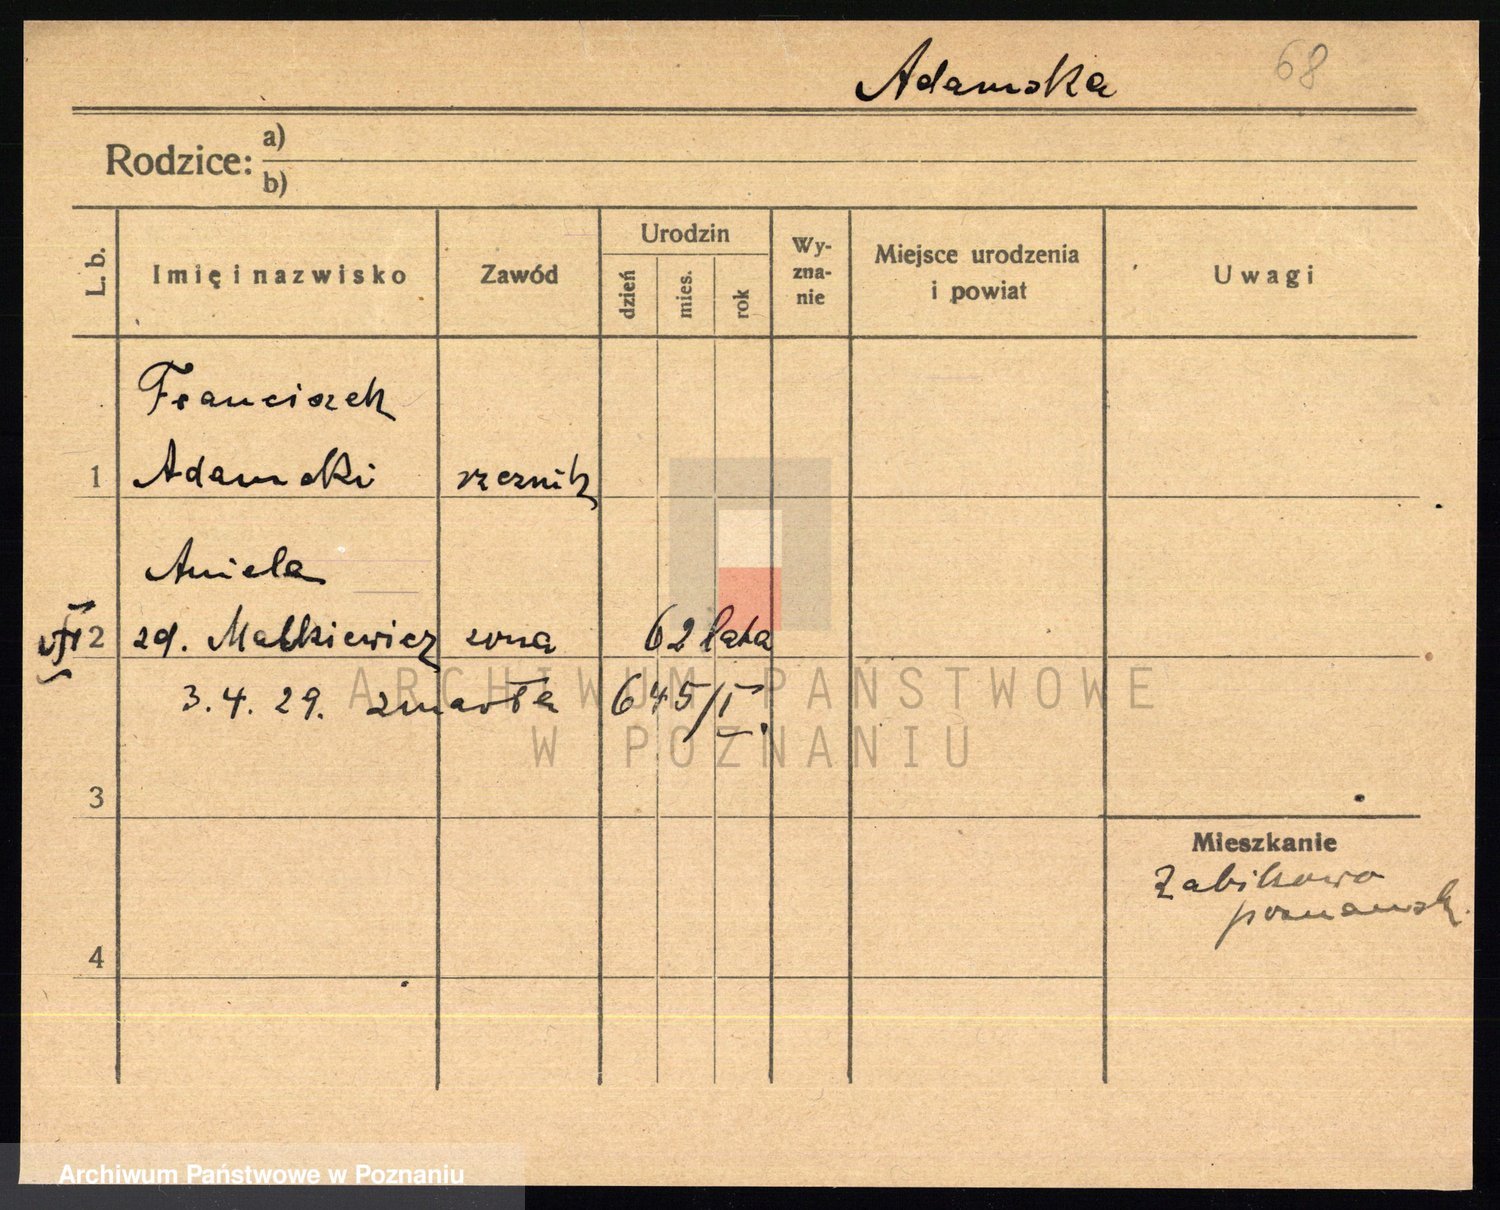 Adamska 68
Rodzice: a)
b)
L. b. Imię i nazwisko Zawód Urodzin dzień mies. rok Wy-zna-nie Miejsce urodzenia i powiat Uwagi
Franciszek
1 Adamski rzeznik
Aniela
2 zd. Małkiewicz zona 62 lata
3.4.29. zmarła 645/I.
ARCHIWUM PAŃSTWOWE
W POZNANIU
3
Mieszkanie
Zabikowo
poznańsk.
4
Archiwum Państwowe w Poznaniu